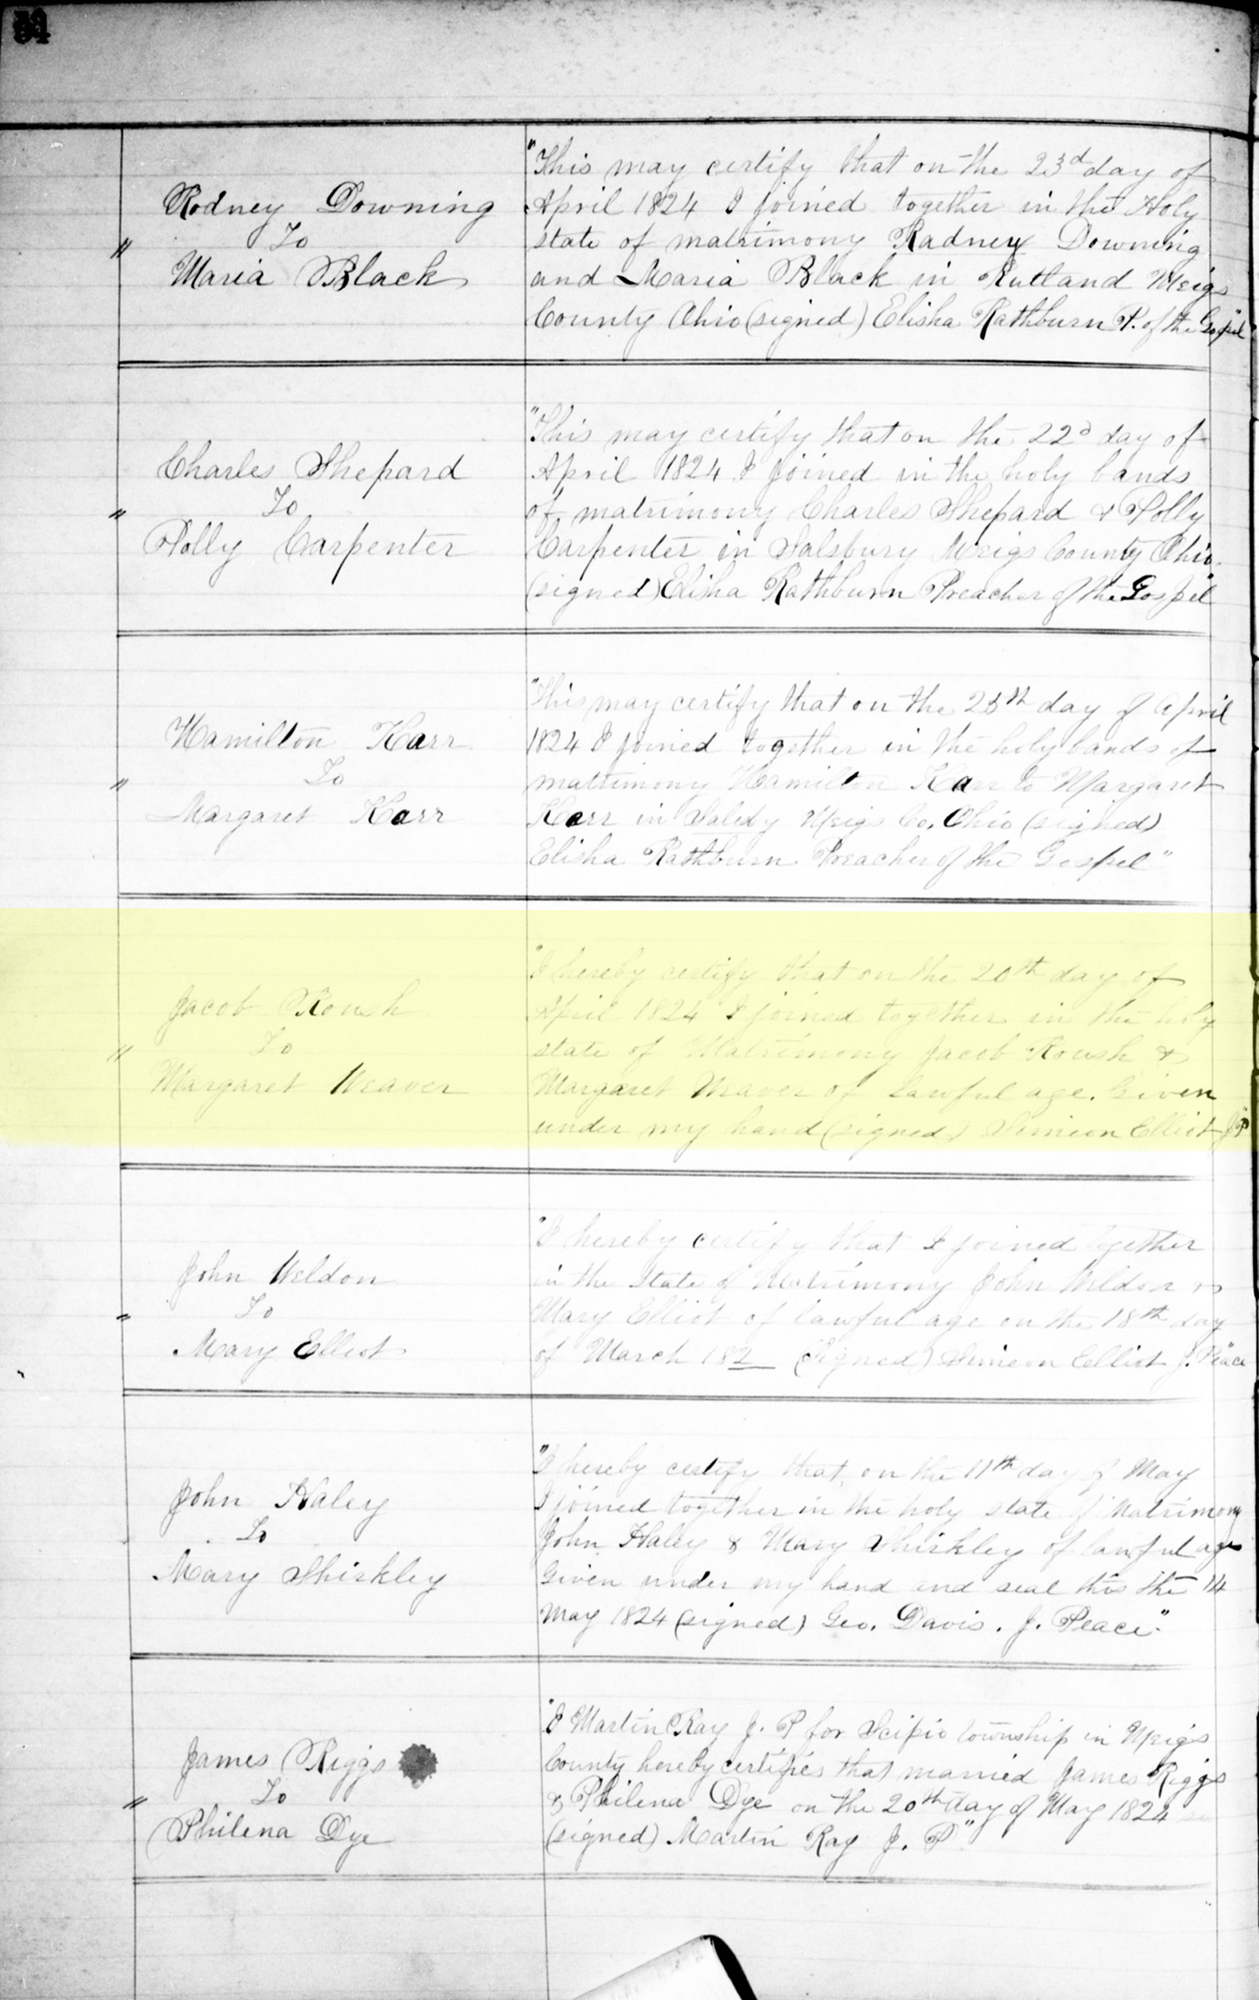 Rodney Downing
To
Maria Black
"
"This may certify that on the 23d day of
April 1824 I joined together in the Holy
state of matrimony Radney Downing
and Maria Black in Rutland Meigs
County Ohio (signed) Elisha Rathburn P. of the Gospel"
Charles Shepard
To
Polly Carpenter
"
"This may certify that on the 22d day of
April 1824 I joined in the holy bands
of matrimony Charles Shepard & Polly
Carpenter in Salsbury Meigs County Ohio.
(signed) Elisha Rathburn Preacher of the Gospel"
Hamilton Karr
To
Margaret Karr
"
"This may certify that on the 25th day of April
1824 I joined together in the holy bands of
matrimony Hamilton Karr to Margaret
Karr in Meigs Co. Ohio (signed)
Elisha Rathburn Preacher of the Gospel"
Jacob Roush
To
Margaret Weaver
"
"I hereby certify that on the 20th day of
April 1824 I joined together in the holy
state of Matrimony Jacob Roush &
Margaret Weaver of lawful age. Given
under my hand (signed) Simieon Elliot J.P"
John Weldon
To
Mary Elliot
"
"I hereby certify that I joined together
in the State of Matrimony John Weldon &
Mary Elliot of lawful age on the 18th day
of March 182_ (Signed) Simieon Elliot J. Peace"
John Haley
To
Mary Shirkley
"I hereby certify that on the 11th day of May
I joined together in the holy state of Matrimony
John Haley & Mary Shirkley of lawful age
Given under my hand and seal this the 14
May 1824 (signed) Geo. Davis. J. Peace"
James Riggs
To
Philena Dye
"
"I Martin Ray J. P for Scipio township in Meigs
County hereby certifies that married James Riggs
& Philena Dye on the 20th day of May 1824
(signed) Martin Ray J. P"